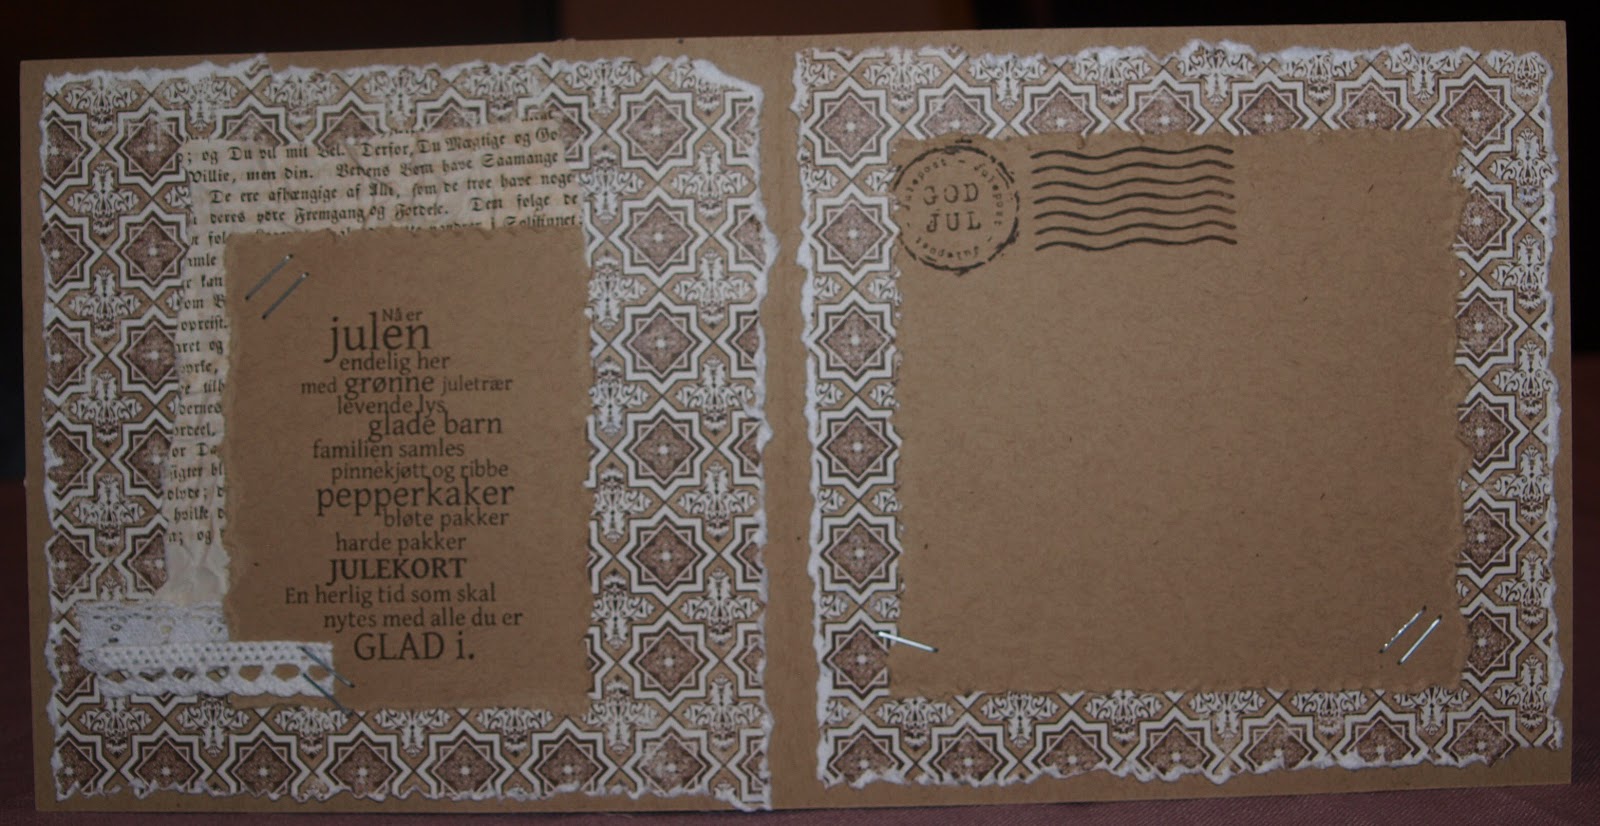 ; og Du vil mit Vel. Derfor, Du Mægtige og Go
Villie, men din. Verdens Børn have Saamange
De ere afhængige af Alt, som de troe have noge
deres ydre Fremgang og Fordele. Dem følge de
føl
amle
kan
om B
opreist.
aret og
tilb
dernes
ordeel,
or Da
igter bl
hvilke d
; og
Nå er
julen
endelig her
med grønne juletrær
levende lys
glade barn
familien samles
pinnekjøtt og ribbe
pepperkaker
bløte pakker
harde pakker
JULEKORT
En herlig tid som skal
nytes med alle du er
GLAD i.
Julepost - Julepost - Julepost -
GOD
JUL